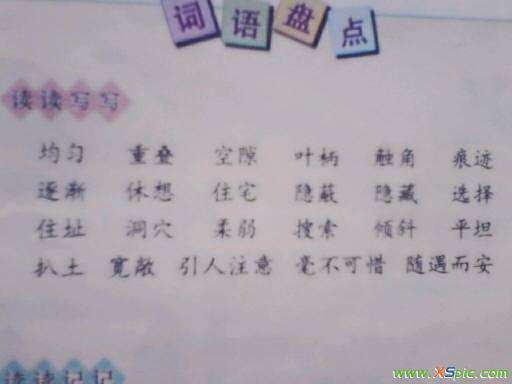 词语盘点
读读写写
均匀 重叠 空隙 叶柄 触角 痕迹
逐渐 休想 住宅 隐蔽 隐藏 选择
住址 洞穴 柔弱 搜索 倾斜 平坦
扒土 宽敞 引人注意 毫不可惜 随遇而安
读读记记
www.XSpic.com